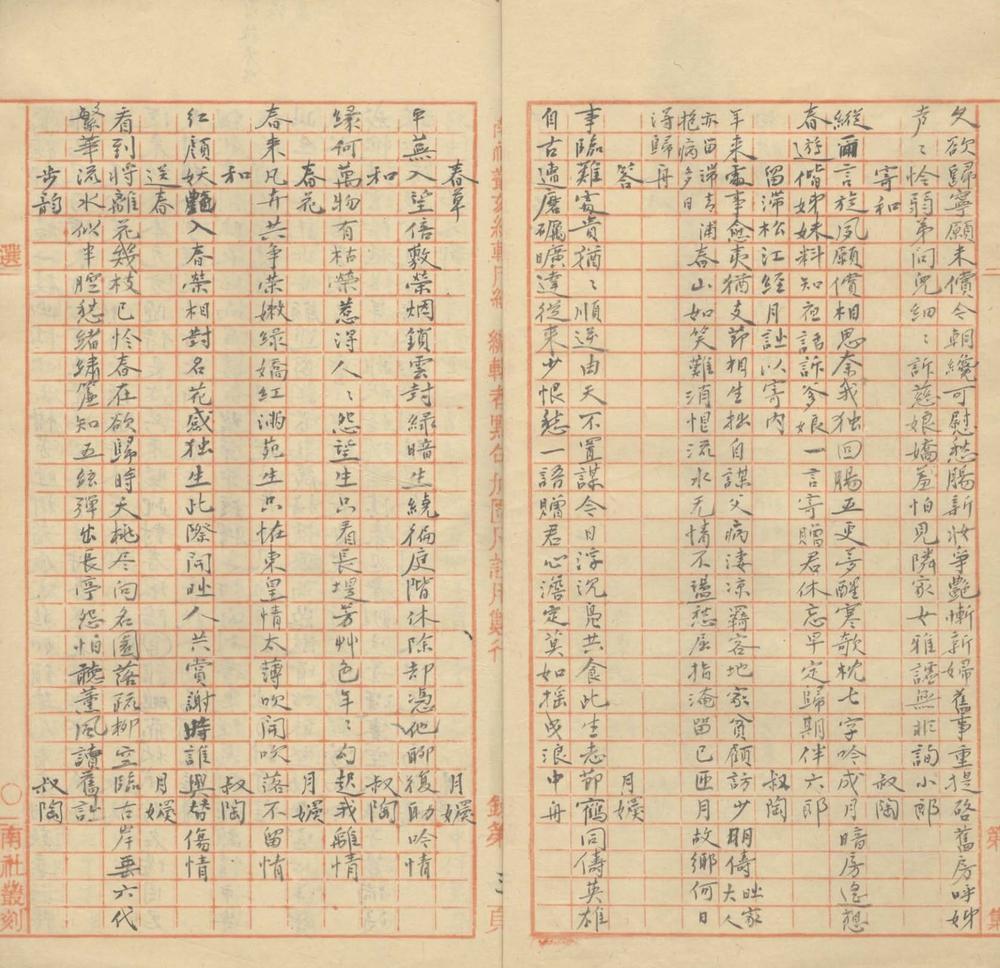 久欲歸寧願未償今朝纔可慰愁腸新妝爭艷慚新婦舊事重提啓舊房呼姊
聲〻怜弱弟问兒細〻訴慈娘嬌羞怕見隣家女雅謔無非詢小郎
寄和 叔陶
縱爾言旋夙願償相思奈我独回腸五更夢醒寒欹枕七字吟成月暗房遙想
春遊偕姊妹料知夜話訴爹娘一言寄贈君休忘早定歸期伴六郎
留滞松江經月詘以寄内 叔陶
年来處事愈夷猶支節相生拙自謀父病淒凉羇客地家貧顧訪少朋儔大人
亦留滞青浦抱病多日春山如笑難消恨流水无情不盪愁屈指淹留已匝月故鄉何日
得歸舟
答 月嬡
事臨難實貴猶〻順逆由天不置謀今日浮沉鳧共食此生志節鶴同儔英雄
自古遭磨礪曠達從来少恨愁一語贈君心濳定莫如摇曳浪中舟
春草 月嬡
平蕪入望倍敷榮烟鎖雲封緑暗生繞徧庭階休除却憑他聊復助吟情
和 叔陶
緑何萬物有枯榮惹得人〻怨望生只看長堤芳艸色年〻勾起我離情
春花 月嬡
春来凡卉共争荣嫩緑嬌紅滿苑生只恠東皇情太薄吹開吹落不留情
和 叔陶
红顔妖艷入春榮相對名花感独生此際開時人共賞謝時誰與替傷情
送春 月嬡
看到將離花幾枝已怜春在欲歸時夭桃尽向名園落疏柳空臨古岸垂六代
繁華流水似半腔愁緒繡簾知五絃彈出長亭怨怕聽薰风讀舊詘
步韵 叔陶
選
南社叢刻